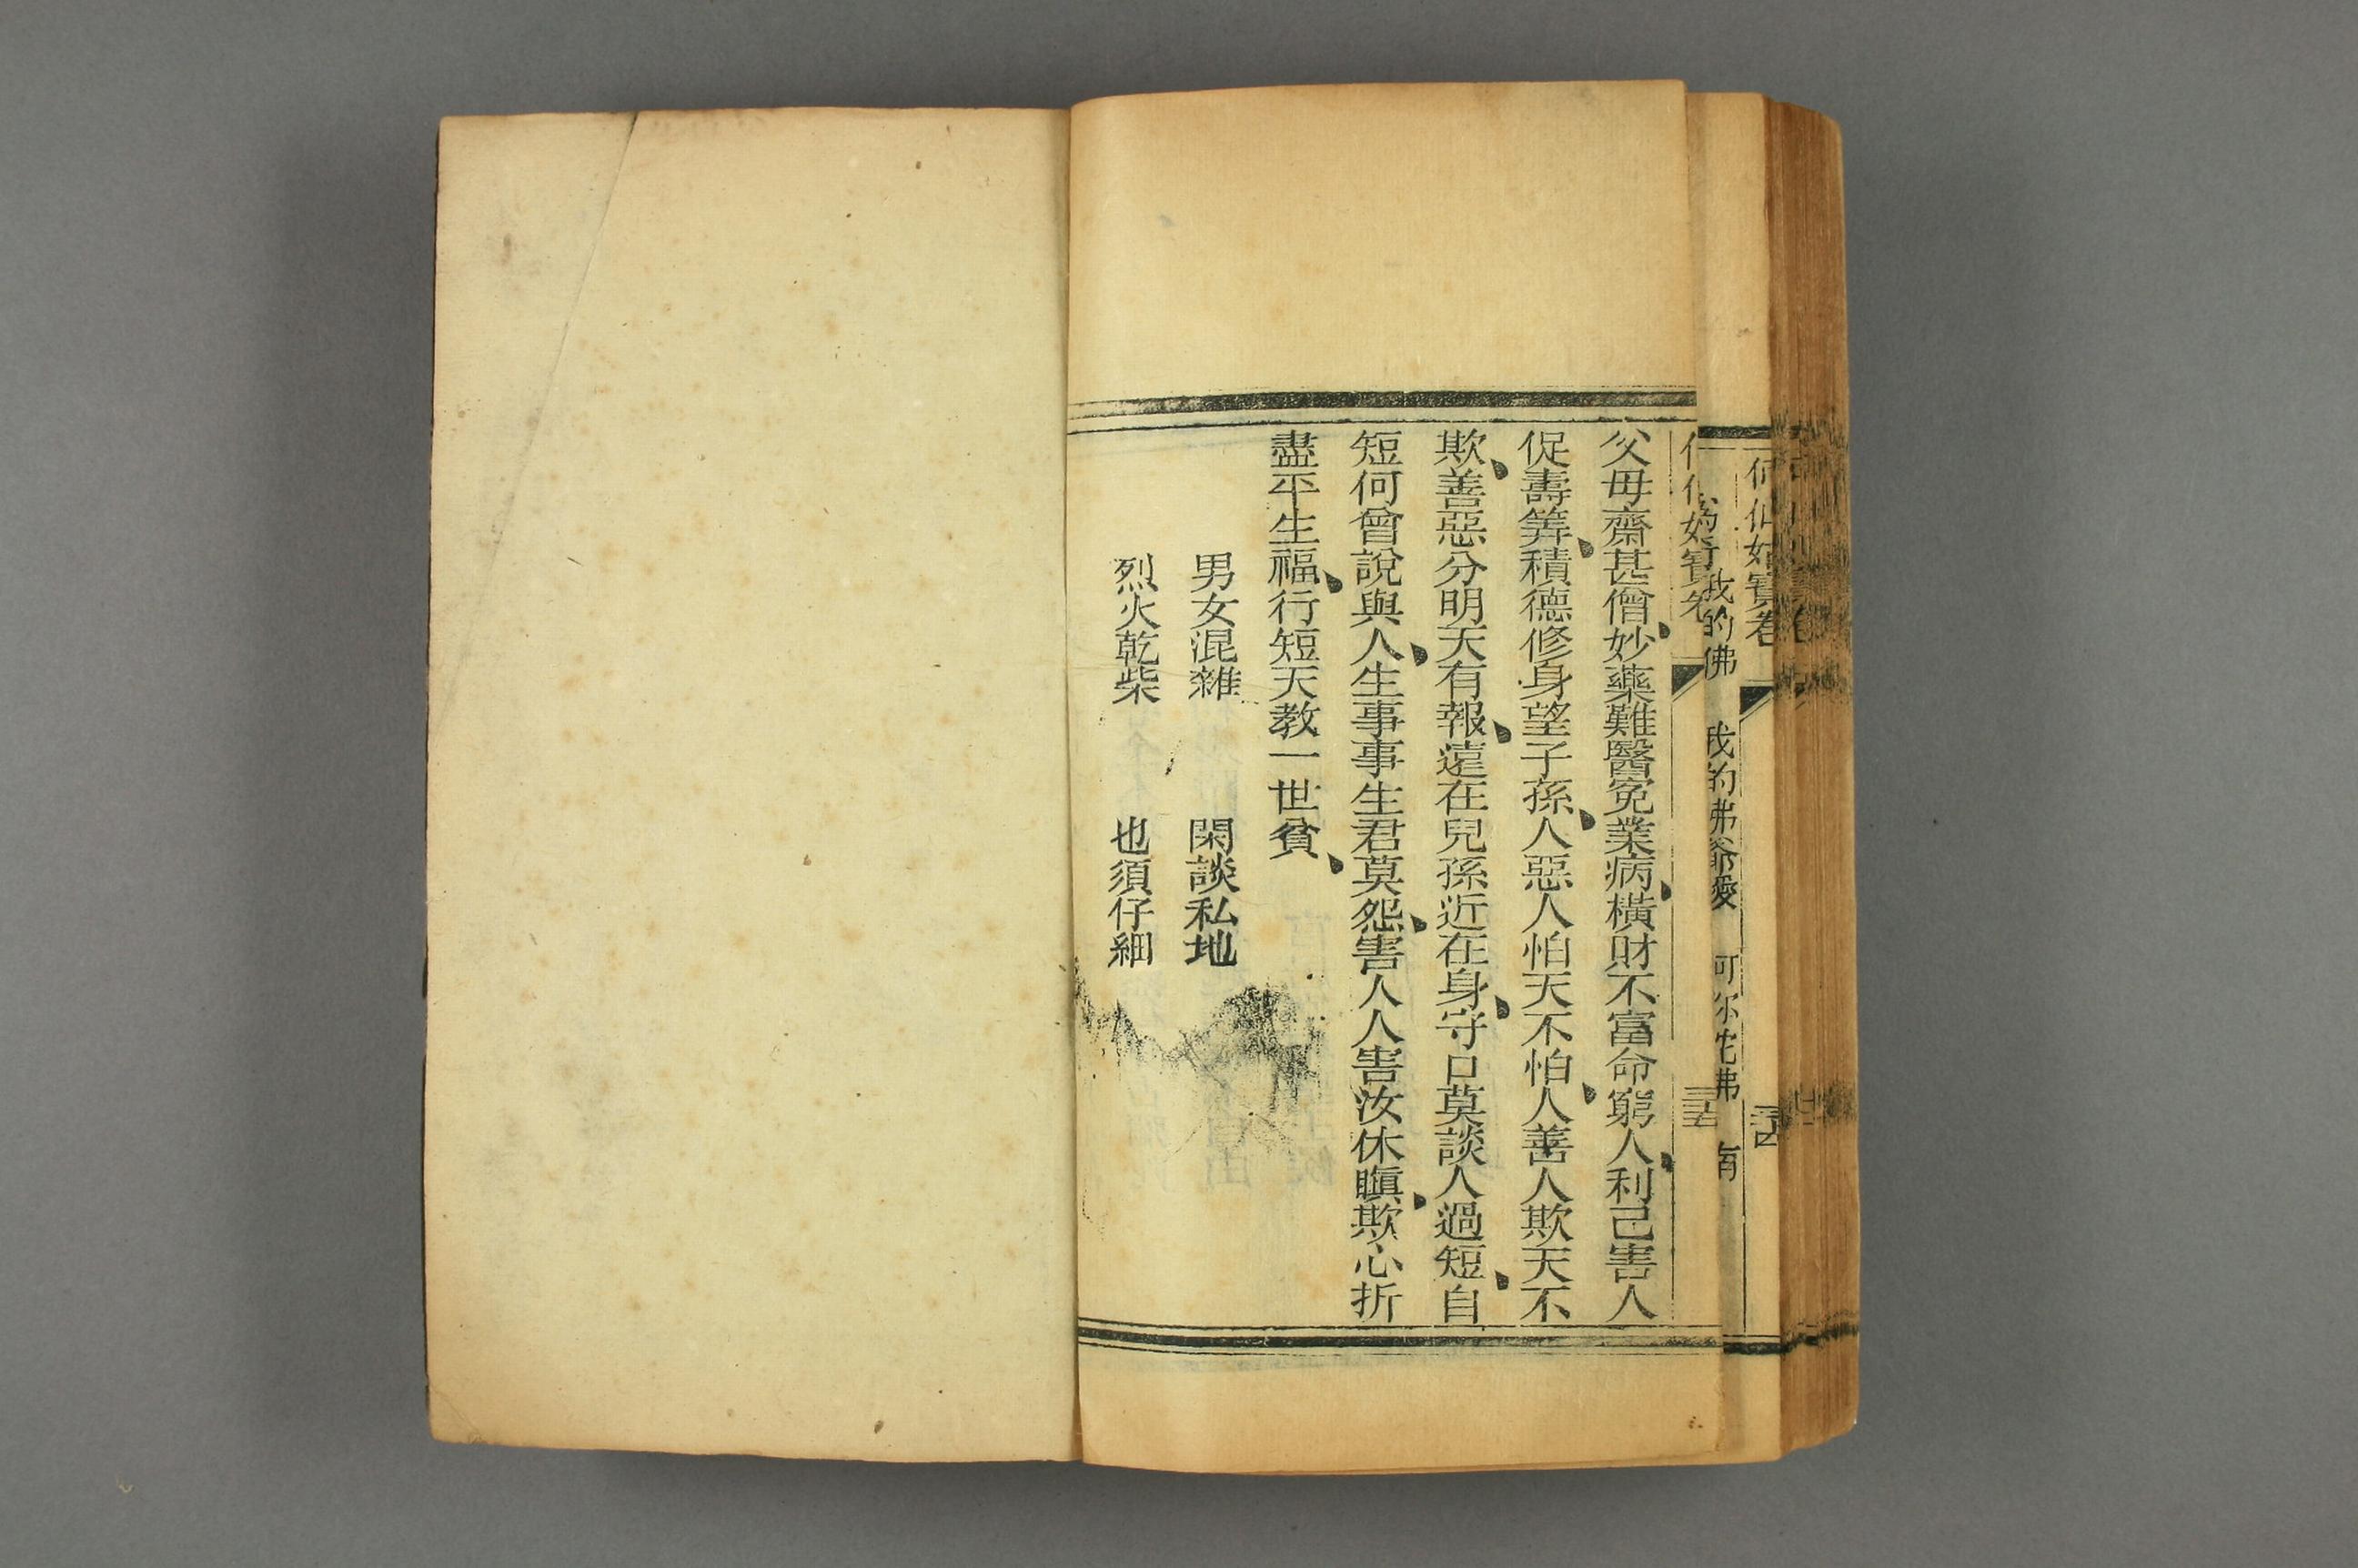 何仙姑寶卷
我的佛 我的佛爺愛
父母齋甚僧妙藥難醫冤業病橫財不富命窮人利己害人
促壽筭積德修身望子孫人惡人怕天不怕人善人欺天不
欺善惡分明天有報遠在兒孫近在身守口莫談人過短自
短何曾說與人生事事生君莫怨害人人害汝休瞋欺心折
盡平生福行短天教一世貧
男女混雜 閑談私地
烈火乾柴 也須仔細